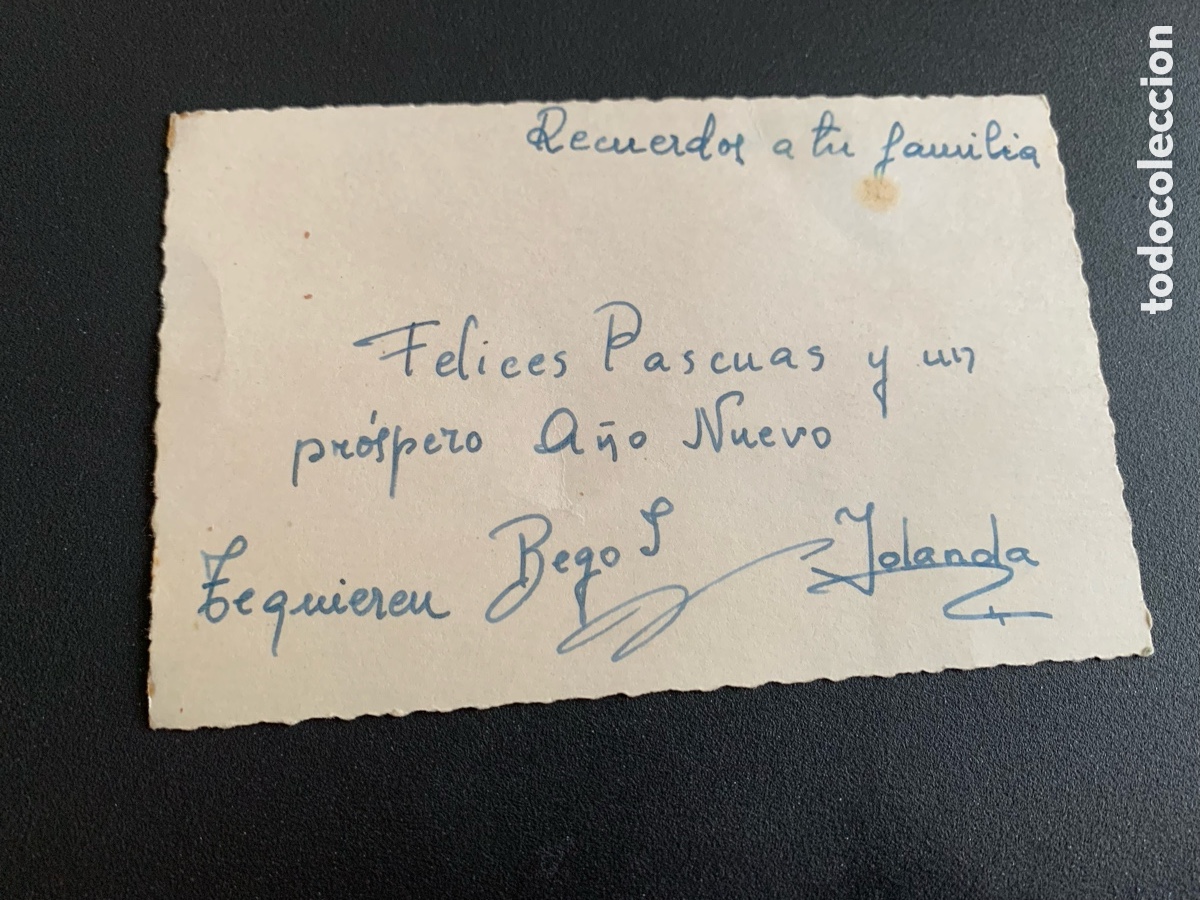 Recuerdos a tu familia
Felices Pascuas y un
próspero Año Nuevo
Te quieren Bego S Yolanda
todocoleccion